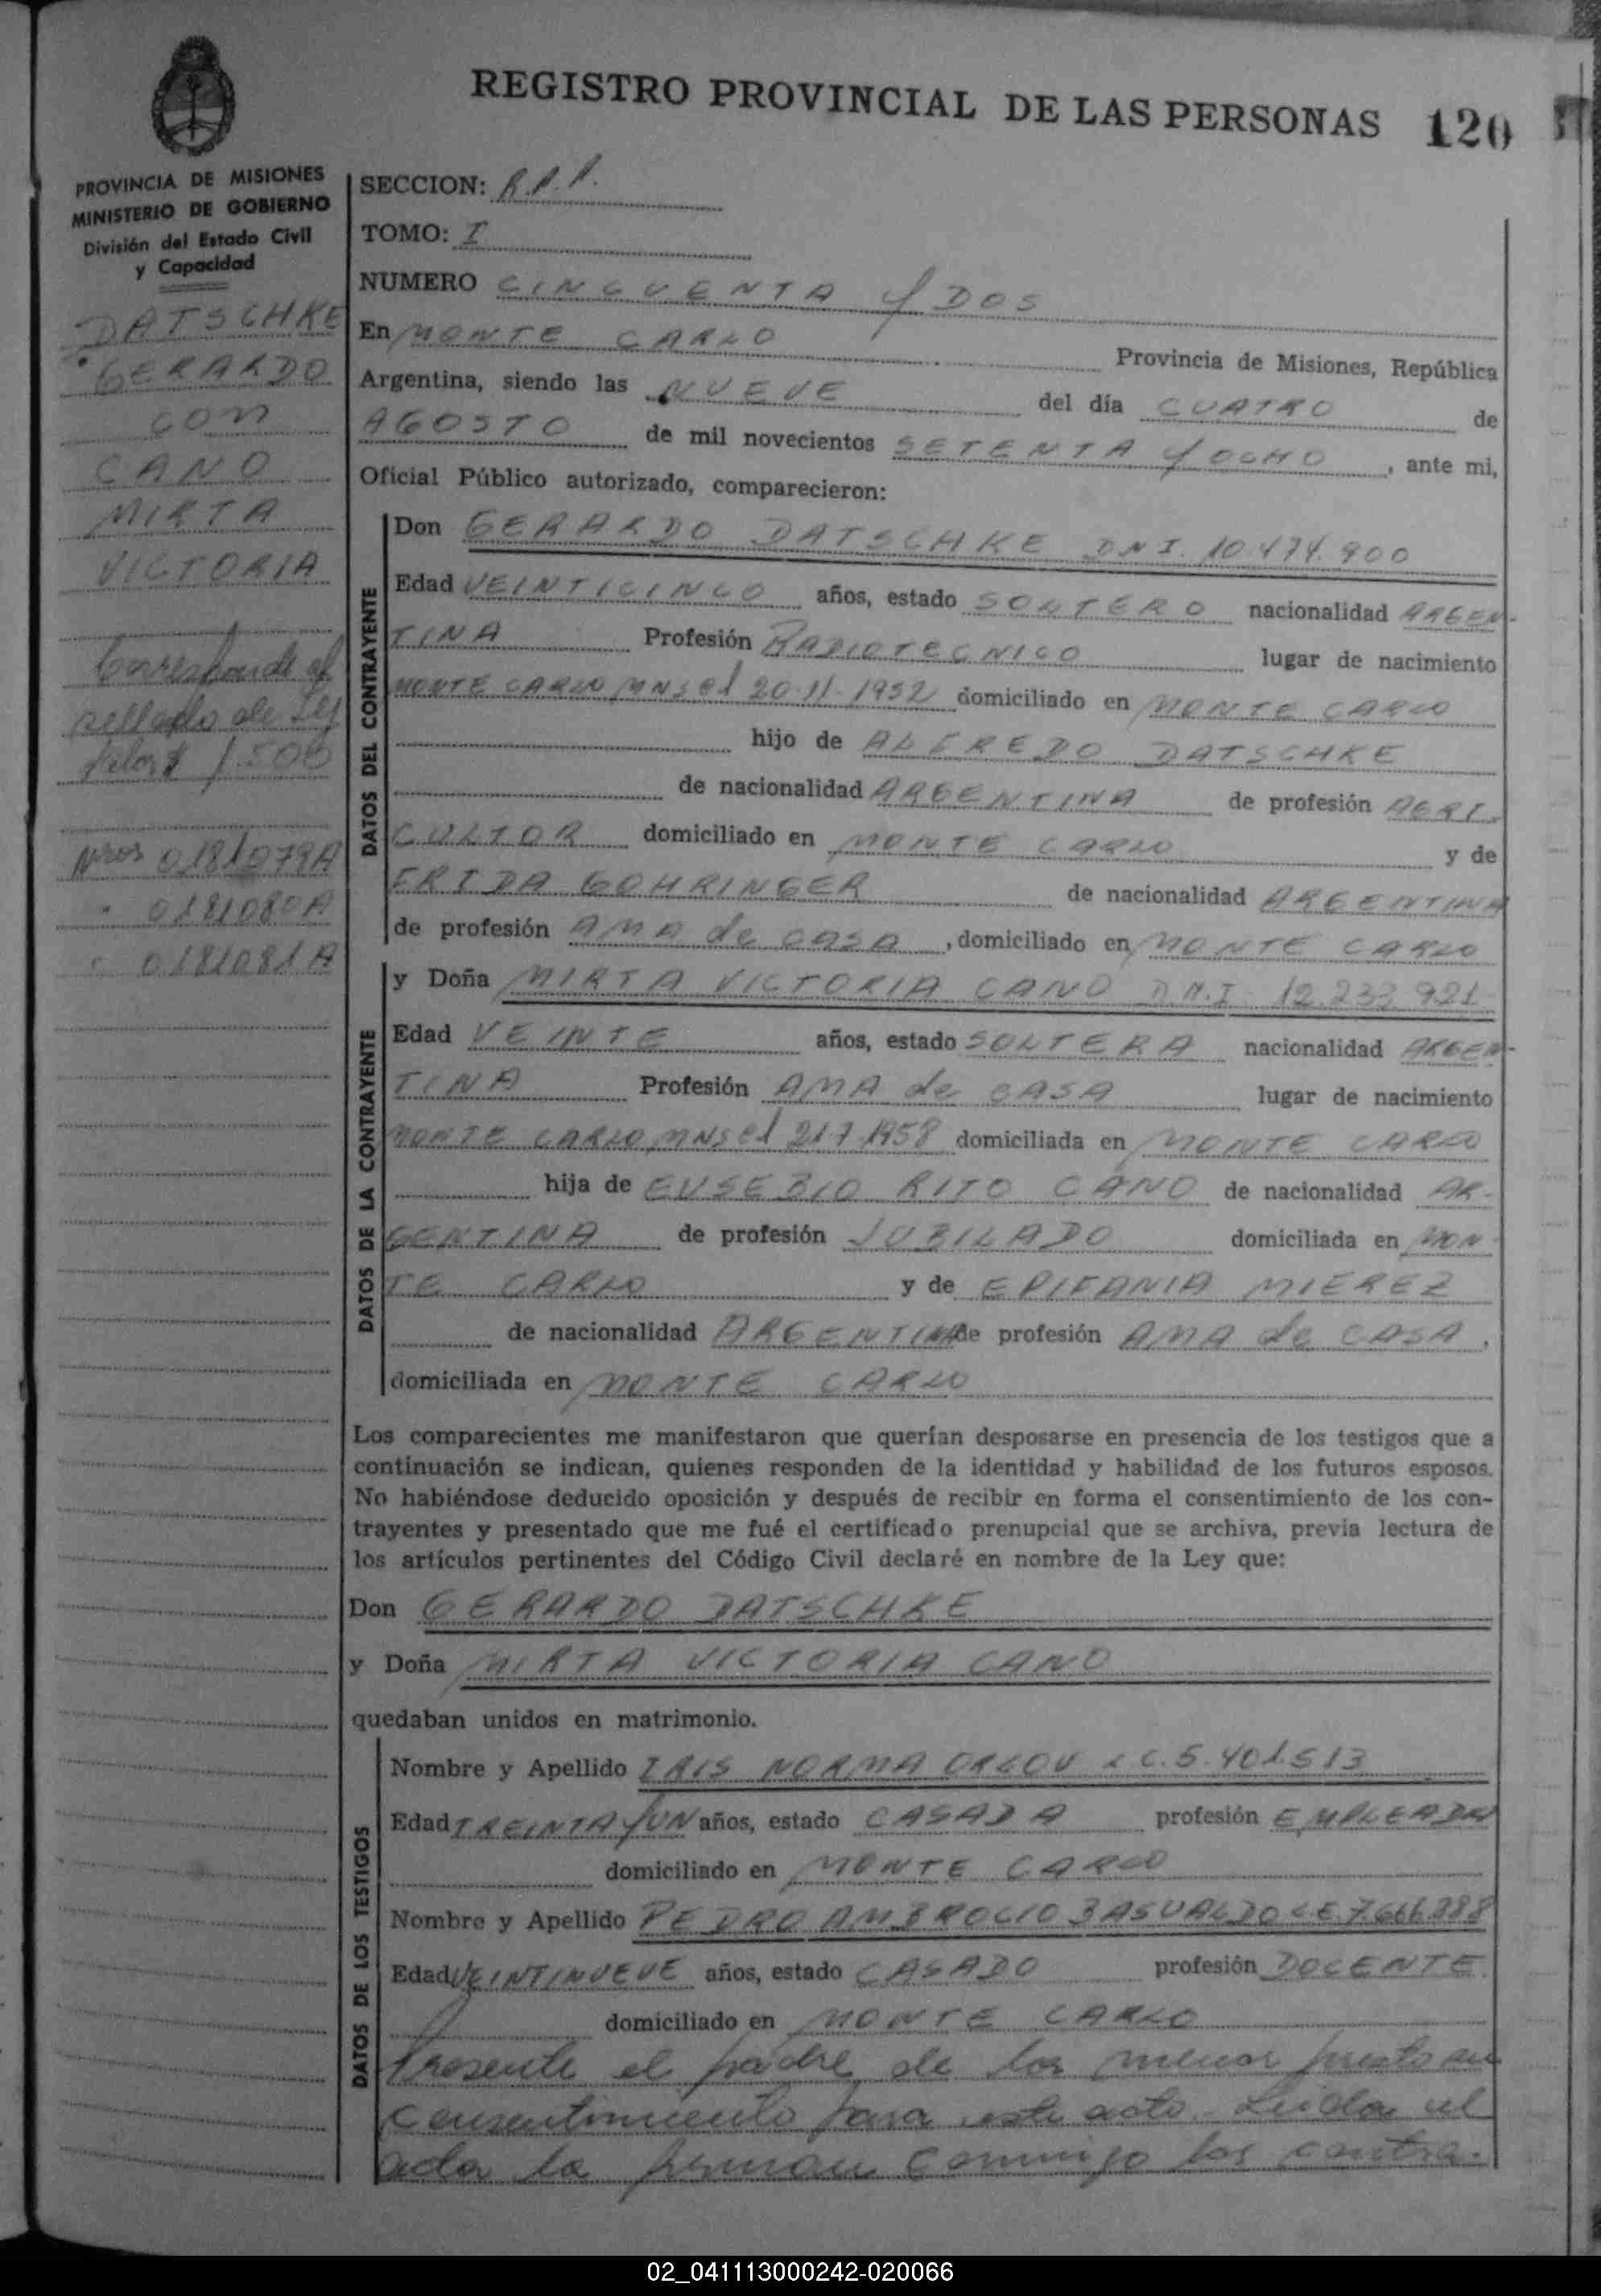 REGISTRO PROVINCIAL DE LAS PERSONAS 120
PROVINCIA DE MISIONES
MINISTERIO DE GOBIERNO
División del Estado Civil
y Capacidad
DATSCHKE
GERARDO
con
CANO
MIRTA
VICTORIA
Corresponde al
sellado de Ley
1.500
Nros 0181079A
" 0181080A
" 0181081A
SECCION:
TOMO: I
NUMERO CINCUENTA Y DOS
En MONTE CARLO Provincia de Misiones, República
Argentina, siendo las NUEVE del día CUATRO de
AGOSTO de mil novecientos SETENTA Y OCHO, ante mi,
Oficial Público autorizado, comparecieron:
DATOS DEL CONTRAYENTE
Don GERARDO DATSCHKE DNI. 10.474.900
Edad VEINTICINCO años, estado SOLTERO nacionalidad ARGEN-
TINA Profesión RADIOTECNICO lugar de nacimiento
MONTE CARLO MNS el 20.11.1952 domiciliado en MONTE CARLO
hijo de ALFREDO DATSCHKE
de nacionalidad ARGENTINA de profesión AGRI-
CULTOR domiciliado en MONTE CARLO y de
FRIDA GOHRINGER de nacionalidad ARGENTINA
de profesión AMA de CASA, domiciliado en MONTE CARLO
DATOS DE LA CONTRAYENTE
y Doña MIRTA VICTORIA CANO D.N.I. 12.233.921
Edad VEINTE años, estado SOLTERA nacionalidad ARGEN-
TINA Profesión AMA de CASA lugar de nacimiento
MONTE CARLO MNS el 21.7.1958 domiciliada en MONTE CARLO
hija de EUSEBIO RITO CANO de nacionalidad AR-
GENTINA de profesión JUBILADO domiciliada en MON-
TE CARLO y de EPIFANIA MIEREZ
de nacionalidad ARGENTINA de profesión AMA de CASA,
domiciliada en MONTE CARLO
Los comparecientes me manifestaron que querían desposarse en presencia de los testigos que a
continuación se indican, quienes responden de la identidad y habilidad de los futuros esposos.
No habiéndose deducido oposición y después de recibir en forma el consentimiento de los con-
trayentes y presentado que me fué el certificado prenupcial que se archiva, previa lectura de
los artículos pertinentes del Código Civil declaré en nombre de la Ley que:
Don GERARDO DATSCHKE
y Doña MIRTA VICTORIA CANO
quedaban unidos en matrimonio.
DATOS DE LOS TESTIGOS
Nombre y Apellido IRIS NORMA ORLOV L.C. 5.401.513
Edad TREINTA Y UN años, estado CASADA profesión EMPLEADA
domiciliado en MONTE CARLO
Nombre y Apellido PEDRO AMBROCIO BASUALDO L.E. 7.666.388
Edad VEINTINUEVE años, estado CASADO profesión DOCENTE
domiciliado en MONTE CARLO
Presente el padre de la menor presta su
consentimiento para este acto. Leida el
acta la firman conmigo los contra-
02_041113000242-020066